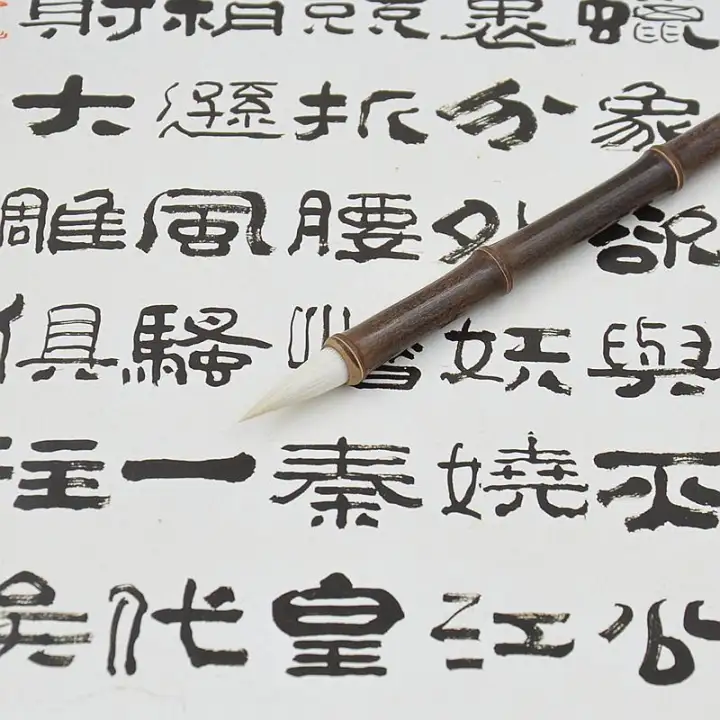 蠟象欲與天公
裹分外妖嬈江
競折腰惜秦皇
稍遜風騷一代
射大雕俱往矣